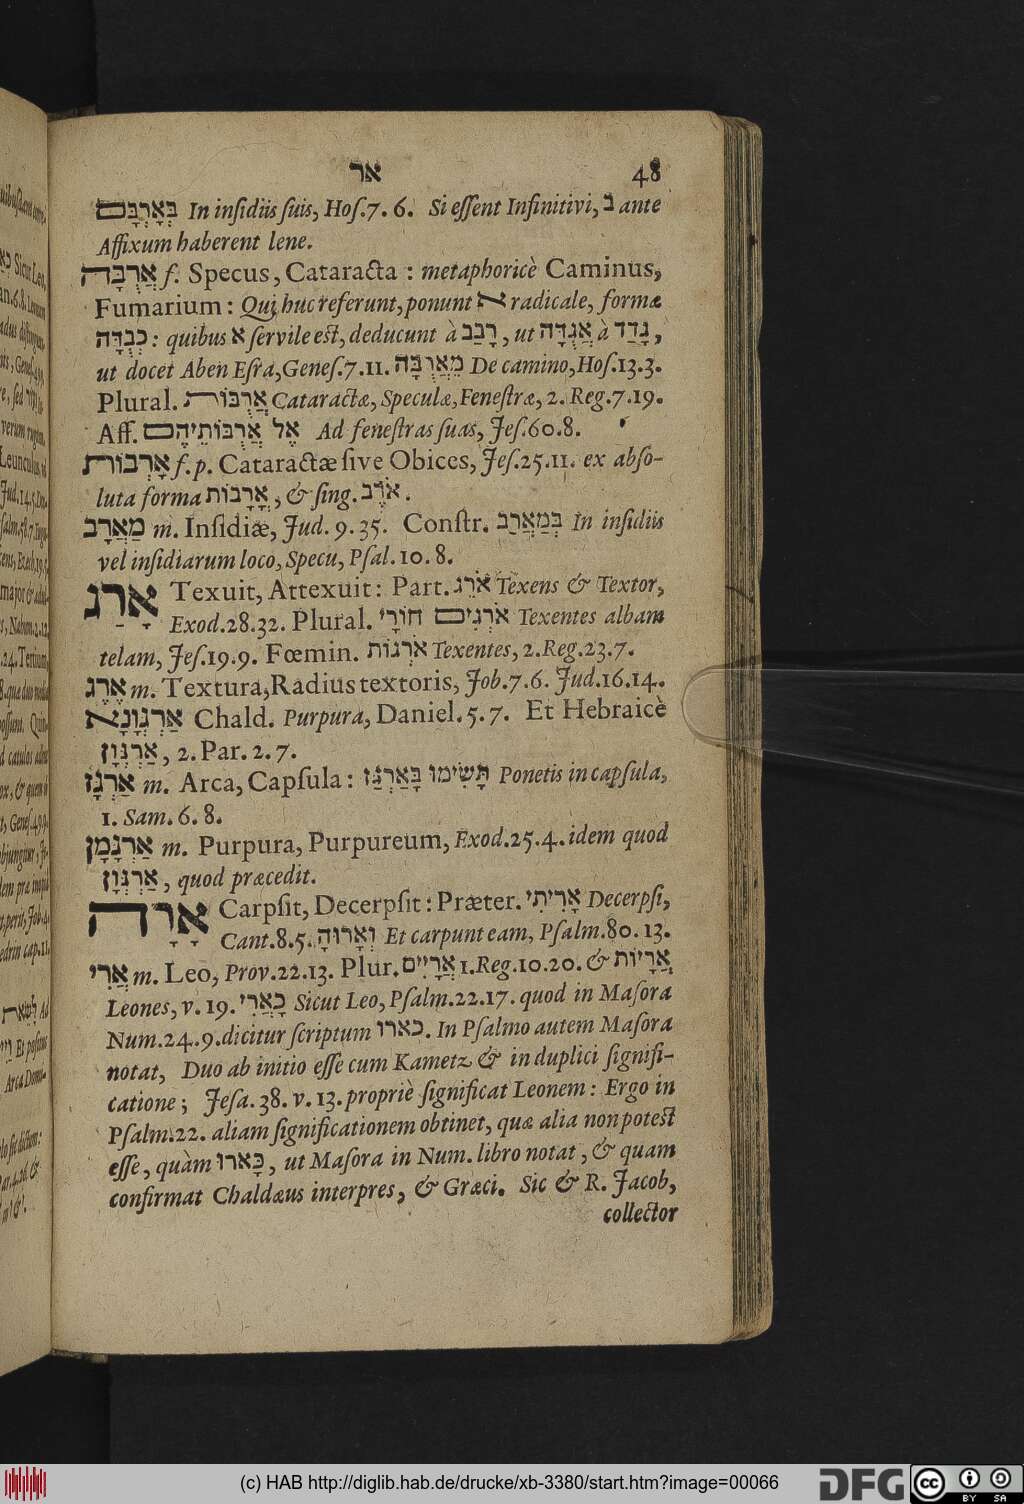 אר 48
בְּאָרְבָּם In insidiis suis, Hos.7.6. Si essent Infinitivi, ב ante
Affixum haberent lene.
אֲרֻבָּה f. Specus, Cataracta : metaphoricè Caminus,
Fumarium : Qui huc referunt, ponunt א radicale, formæ
כְּבֻדָּה : quibus א servile est, deducunt à רָבַב, ut אֲגֻדָּה à גָדַד,
ut docet Aben Esra, Genes.7.11. מֵאֲרֻבָּה De camino, Hos.13.3.
Plural. אֲרֻבּוֹת Cataractæ, Speculæ, Fenestræ, 2. Reg.7.19.
Aff. אֶל אֲרֻבּוֹתֵיהֶם Ad fenestras suas, Jes.60.8.
אָרְבוֹת f.p. Cataractæ sive Obices, Jes.25.11. ex abso-
luta forma אֳרָבוֹת, & sing. אֹרֶב.
מַאֲרָב m. Insidiæ, Jud. 9.35. Constr. בְּמַאֲרַב In insidiis
vel insidiarum loco, Specu, Psal.10.8.
אָרַג Texuit, Attexuit: Part. אֹרֵג Texens & Textor,
Exod.28.32. Plural. אֹרְגִים חוֹרָי Texentes albam
telam, Jes.19.9. Fœmin. אֹרְגוֹת Texentes, 2.Reg.23.7.
אֶרֶג m. Textura, Radius textoris, Job.7.6. Jud.16.14.
אַרְגְּוָנָא Chald. Purpura, Daniel.5.7. Et Hebraicè
אַרְגְּוָן, 2.Par.2.7.
אַרְגָּז m. Arca, Capsula : תָּשִׂימוּ בָּאַרְגַּז Ponetis in capsula,
1. Sam.6.8.
אַרְגָּמָן m. Purpura, Purpureum, Exod.25.4. idem quod
אַרְגְּוָן, quod præcedit.
אָרָה Carpsit, Decerpsit : Præter. אָרִיתִי Decerpsi,
Cant.8.5. וְאָרוּהָ Et carpunt eam, Psalm.80.13.
אֲרִי m. Leo, Prov.22.13. Plur. אֲרָיִים 1.Reg.10.20. & אֲרָיוֹת
Leones, v.19. כָּאֲרִי Sicut Leo, Psalm.22.17. quod in Masora
Num.24.9. dicitur scriptum כארו. In Psalmo autem Masora
notat, Duo ab initio esse cum Kametz & in duplici signifi-
catione ; Jesa.38. v.13. propriè significat Leonem : Ergo in
Psalm.22. aliam significationem obtinet, quæ alia non potest
esse, quàm כָּארוּ, ut Masora in Num. libro notat, & quam
confirmat Chaldæus interpres, & Græci. Sic & R. Jacob,
collector
(c) HAB http://diglib.hab.de/drucke/xb-3380/start.htm?image=00066
DFG
cc BY SA